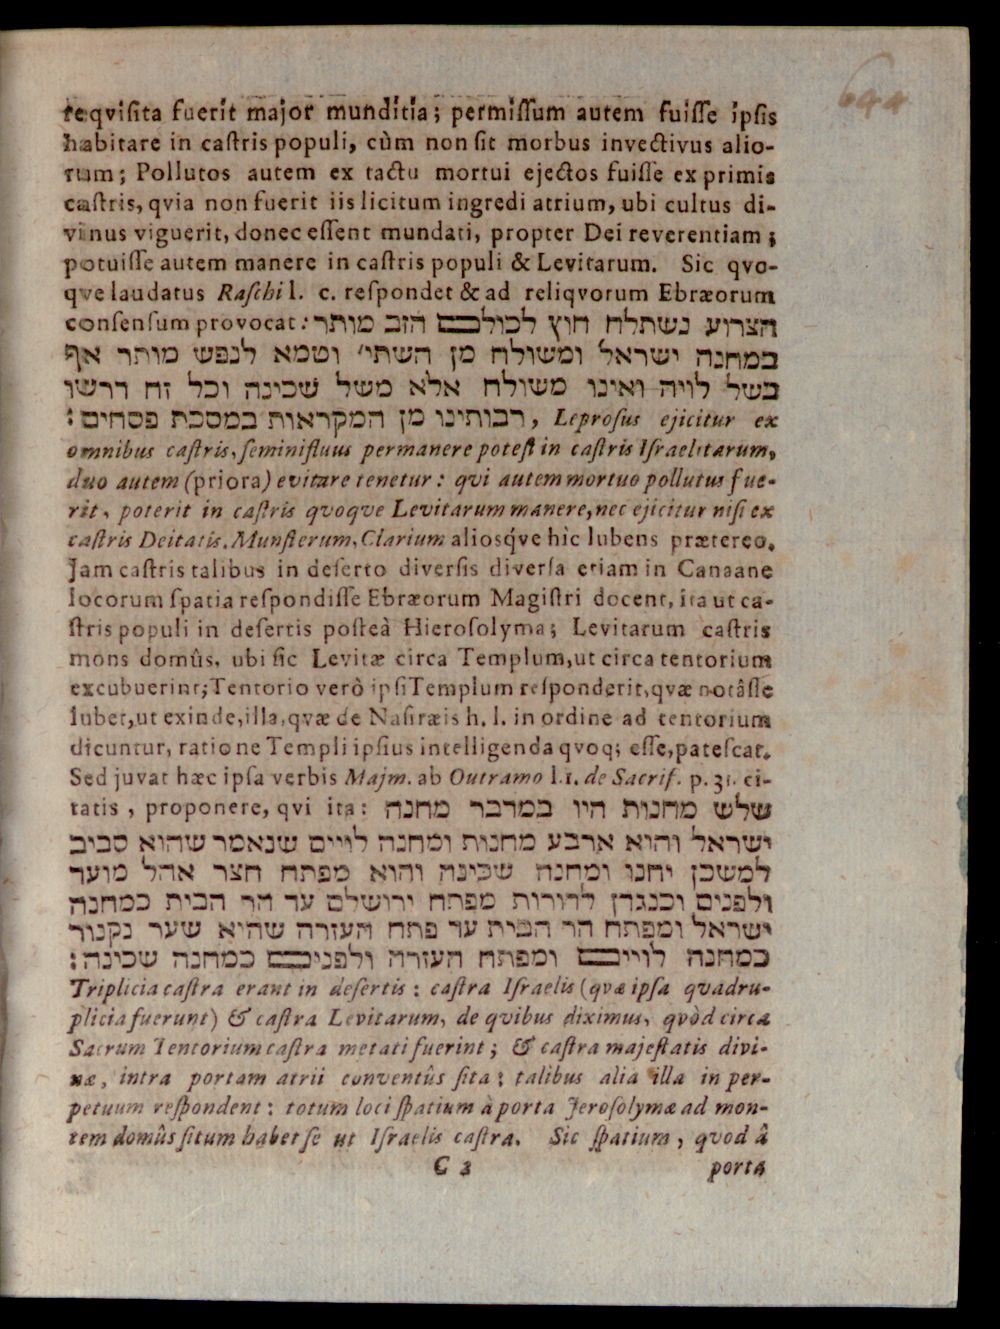 644
reqvisita fuerit major munditia; permissum autem fuisse ipsis
habitare in castris populi, cùm non sit morbus invectivus alio-
rum; Pollutos autem ex tactu mortui ejectos fuisse ex primis
castris, qvia non fuerit iis licitum ingredi atrium, ubi cultus di-
vinus viguerit, donec essent mundati, propter Dei reverentiam;
potuisse autem manere in castris populi & Levitarum. Sic qvo-
qve laudatus Raschi l. c. respondet & ad reliqvorum Ebræorum
consensum provocat: הצרוע נשתלח חוץ לכולם הזב מותר
במחנה ישראל ומשולח מן השתי׳ וטמא לנפש מותר אף
בשל לויה ואינו משולח אלא משל שכינה וכל זח דרשו
רבותינו מן המקראות במסכת פסחים: , Leprosus ejicitur ex
omnibus castris, seminifluus permanere potest in castris Israelitarum,
duo autem (priora) evitare tenetur: qvi autem mortuo pollutus fue-
rit, poterit in castris qvoqve Levitarum manere, nec ejicitur nisi ex
castris Deitatis. Munsterum, Clarium aliosq́ve hìc lubens prætereo.
Jam castris talibus in deserto diversis diversa etiam in Canaane
locorum spatia respondisse Ebræorum Magistri docent, ita ut ca-
stris populi in desertis posteà Hierosolyma; Levitarum castris
mons domûs, ubi sic Levitæ circa Templum, ut circa tentorium
excubuerint; Tentorio verò ipsi Templum responderit, qvæ notâsse
lubet, ut exinde, illa, qvæ de Nasiræis h. l. in ordine ad tentorium
dicuntur, ratione Templi ipsius intelligenda qvoq; esse, patescat.
Sed juvat hæc ipsa verbis Majm. ab Outramo l. 1. de Sacrif. p. 31. ci-
tatis, proponere, qvi ita: שלש מחנות היו במדבר מחנה
ישראל והוא ארבע מחנות ומחנה לויים שנאמר שהוא סביב
למשכן יחנו ומחנה שכינה והוא מפתח חצר אהל מועד
ולפנים וכנגדן לדורות מפתח ירושלם עד הר הבית כמחנה
ישראל ומפתח הר הבית עד פתח העזרה שהיא שער נקנור
כמחנה לויים ומפתח העזרה ולפנים כמחנה שכינה:
Triplicia castra erant in desertis: castra Israelis (qvæ ipsa qvadru-
plicia fuerunt) & castra Levitarum, de qvibus diximus, qvòd circa
Sacrum Tentorium castra metati fuerint; & castra majestatis divi-
næ, intra portam atrii conventûs sita; talibus alia illa in per-
petuum respondent: totum loci spatium à porta Jerosolymæ ad mon-
tem domûs situm habet se ut Israelis castra. Sic spatium, qvod â
C 3 porta